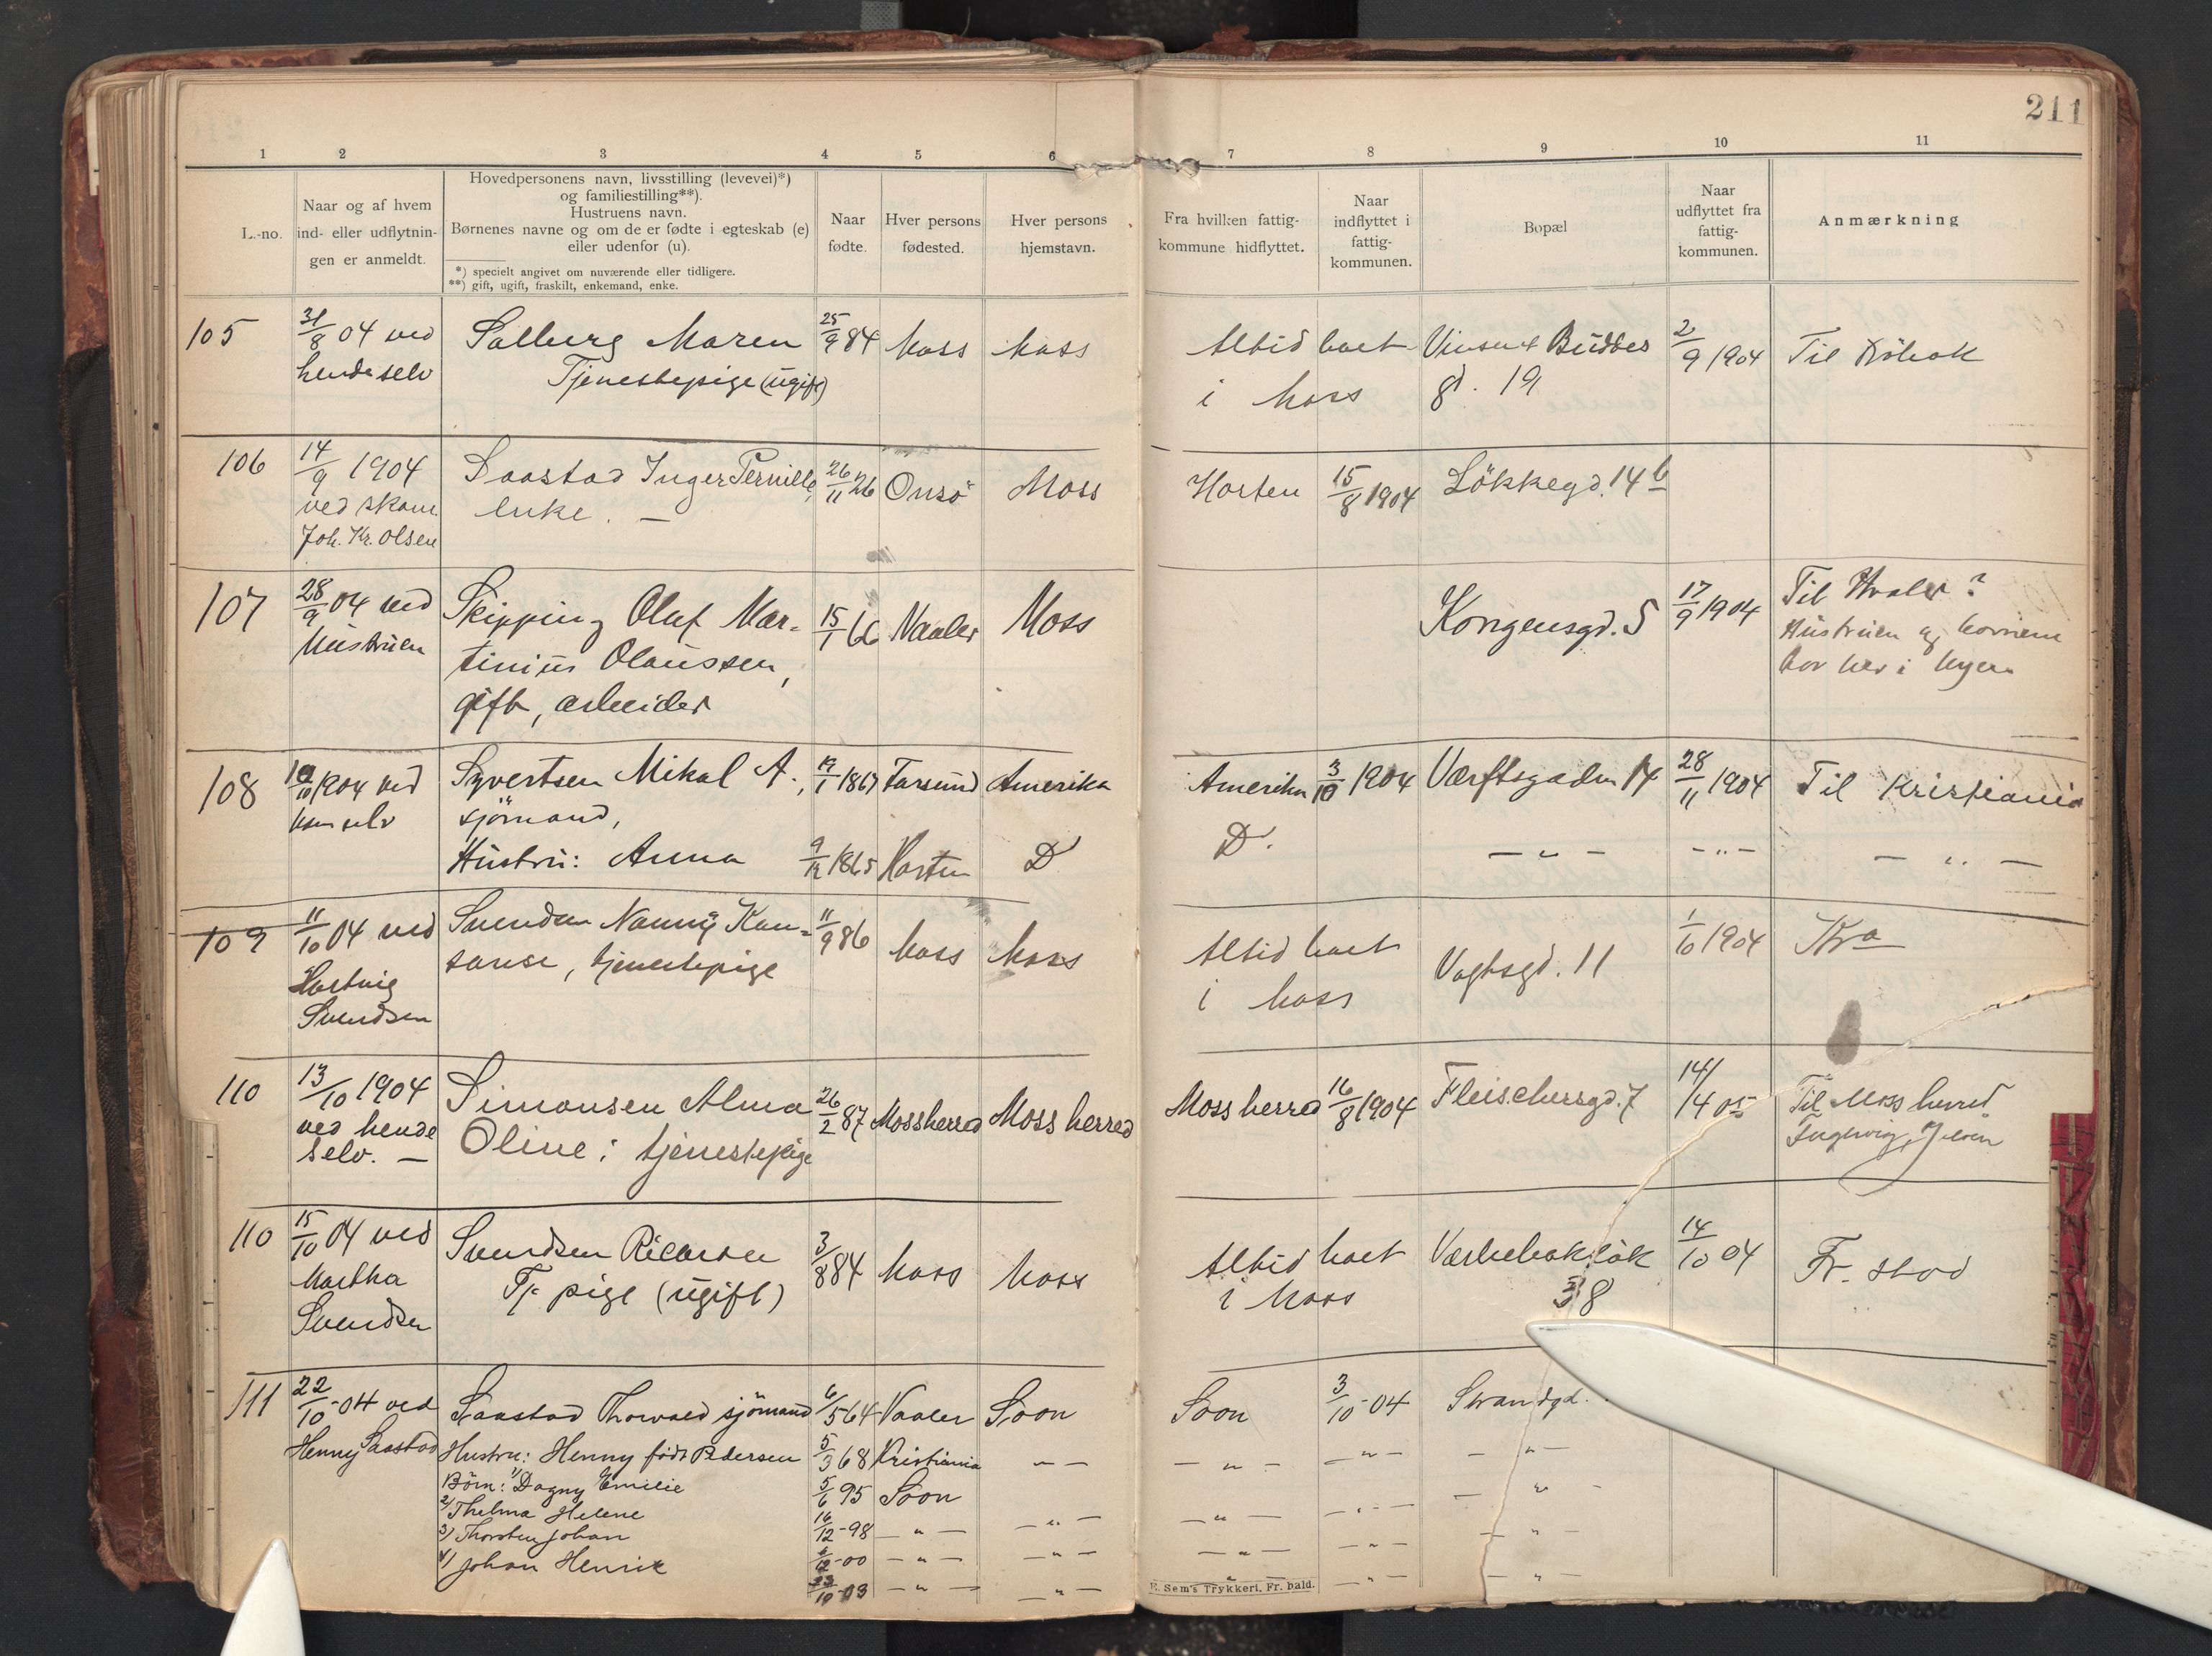 211
1 2 3 4 5 6 7 8 9 10 11
L.-no.
Naar og af hvem
ind- eller udflytnin-
gen er anmeldt.
Hovedpersonens navn, livsstilling (levevei)*)
og familiestilling**).
Hustruens navn.
Børnenes navne og om de er fødte i egteskab (e)
eller udenfor (u).
*) specielt angivet om nuværende eller tidligere.
**) gift, ugift, fraskilt, enkemand, enke.
Naar
fødte.
Hver persons
fødested.
Hver persons
hjemstavn.
Fra hvilken fattig-
kommune hidflyttet.
Naar
indflyttet i
fattig-
kommunen.
Bopæl
Naar
udflyttet fra
fattig-
kommunen.
Anmærkning
105
31/8 04 ved
hende selv
Solberg Maren
Tjenestepige (ugift)
25/9 84
Moss
Moss
Altid boet
i Moss
Vincent Buddes
gd. 19
2/9 1904
Til Dröbak
106
14/9 1904
ved skom.
Joh. Kr. Olsen
Saastad Inger Pernille,
enke. —
26/11 26
Onsö
Moss
Horten
15/8 1904
Lökkegd. 14 b
107
28/9 04 ved
Hustruen
Skipping Oluf Mar-
tinius Olaussen,
gift, arbeider
15/1 66
Vaaler
Moss
Kongensgd. 5
17/9 1904
Til Hvaler?
Hustruen og börnene
bor her i byen
108
10/10 1904 ved
ham selv
Syvertsen Mikal A.,
sjömand,
Hustru: Anna
1867
Farsund
Amerika
9/12 1865
Horten
D
Amerika
3/10 1904
Værftsgaden 14
28/11 1904
Til Kristiania
D.
— " —
— " —
— " —
109
11/10 04 ved
Hartvig
Svendsen
Svendsen Nanny Kon-
stanse, tjenestepige
11/9 86
Moss
Moss
Altid boet
i Moss
Vogtsgd. 11
1/10 1904
Kra
110
13/10 1904
ved hende
selv. —
Simonsen Alma
Oline; tjenestepige
26/2 87
Mossherred
Moss herred
Moss herred
16/8 1904
Fleischersgd. 7
14/4 05
Til Moss herred
110
15/10 04 ved
Martha
Svendsen
Svendsen Ricarda
Tj. pige (ugift)
3/8 84
Moss
Moss
Altid boet
i Moss
38
14/10 04
Fr. stad
111
22/10 - 04 ved
Henny Saastad
Saastad Thorvald sjömand
6/5 64
Vaaler
Soon
Soon
3/10 - 04
Strandgd.
Hustru: Henny född Pedersen
5/3 68
Kristiania
— —
— " —
— " —
— " —
Börn: 1) Dagny Emilie
5/6 95
Soon
— " —
2) Thelma Helene
16/12 - 98
— " —
— " —
— " —
— " —
3) Thorsten Johan
6/12 - 00
— " —
— " —
— " —
— " —
— " —
4) Johan Henrik
23/10 - 03
— " —
— " —
— " —
— " —
— " —
E. Sem's Trykkeri, Fr. hald.